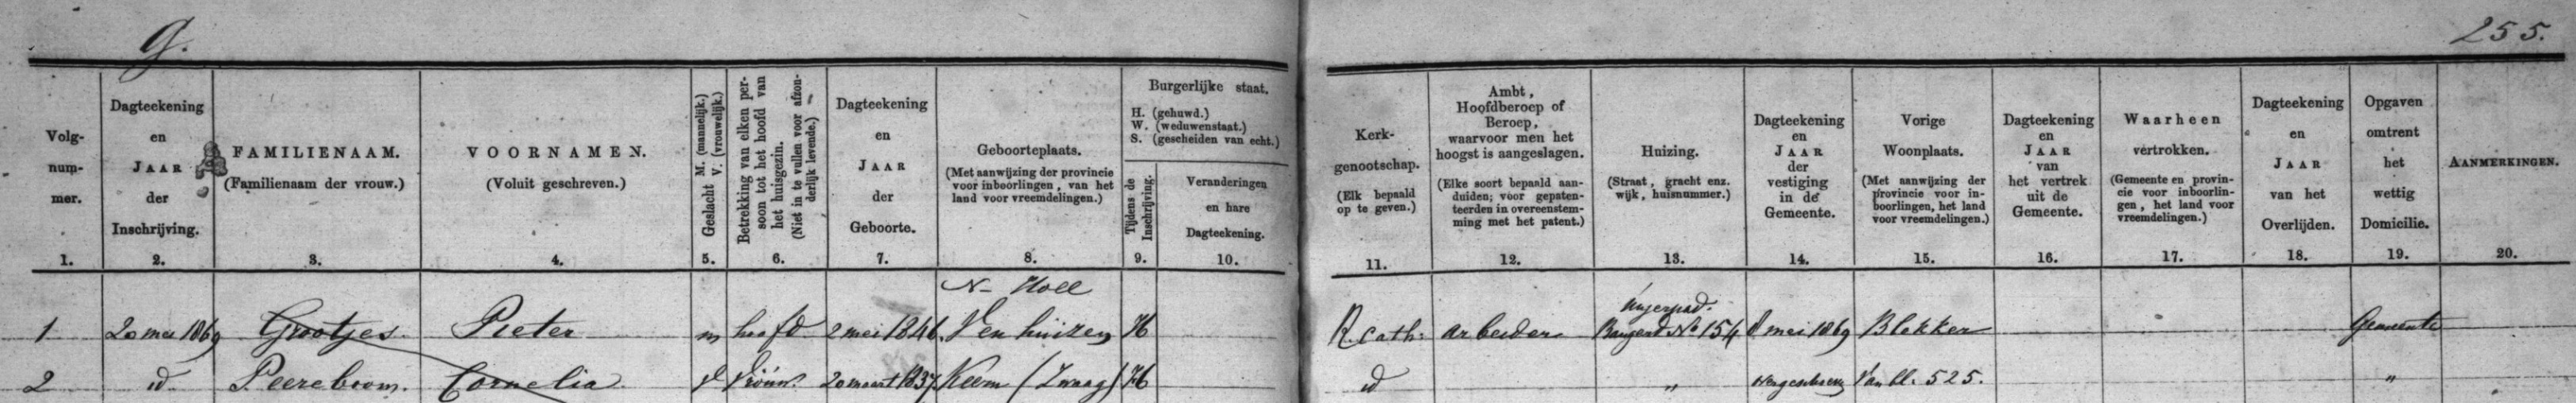 G.
255.
Volg-
num-
mer.
1.
Dagteekening
en
JAAR
der
Inschrijving.
2.
FAMILIENAAM.
(Familienaam der vrouw.)
3.
VOORNAMEN.
(Voluit geschreven.)
4.
Geslacht M. (mannelijk.)
V. (vrouwelijk.)
5.
Betrekking van elken per-
soon tot het hoofd van
het huisgezin.
(Niet in te vullen voor afzon-
derlijk levende.)
6.
Dagteekening
en
JAAR
der
Geboorte.
7.
Geboorteplaats.
(Met aanwijzing der provincie
voor inboorlingen, van het
land voor vreemdelingen.)
8.
Burgerlijke staat.
H. (gehuwd.)
W. (weduwenstaat.)
S. (gescheiden van echt.)
Tijdens de
Inschrijving.
9.
Veranderingen
en hare
Dagteekening.
10.
Kerk-
genootschap.
(Elk bepaald
op te geven.)
11.
Ambt,
Hoofdberoep of
Beroep,
waarvoor men het
hoogst is aangeslagen.
(Elke soort bepaald aan-
duiden; voor gepaten-
teerden in overeenstem-
ming met het patent.)
12.
Huizing.
(Straat, gracht enz.
wijk, huisnummer.)
13.
Dagteekening
en
JAAR
der
vestiging
in de
Gemeente.
14.
Vorige
Woonplaats.
(Met aanwijzing der
provincie voor in-
boorlingen, het land
voor vreemdelingen.)
15.
Dagteekening
en
JAAR
van
het vertrek
uit de
Gemeente.
16.
Waarheen
vertrokken.
(Gemeente en provin-
cie voor inboorlin-
gen, het land voor
vreemdelingen.)
17.
Dagteekening
en
JAAR
van het
Overlijden.
18.
Opgaven
omtrent
het
wettig
Domicilie.
19.
AANMERKINGEN.
20.
N- Holl
1 20 mei 1869 Grootjes. Pieter m hoofd 2 mei 1846. Venhuizen H R. Cath: arbeider Bangerd No 154 8 mei 1869 Blokker Gemeente
2 id Peereboom. Cornelia v vrouw. 20 maart 1837 Keern (Zwaag) H id " Van bl. 525. "